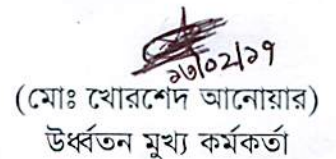 ১৬/০২/১৭
(মোঃ খোরশেদ আনোয়ার)
উর্ধ্বতন মুখ্য কর্মকর্তা